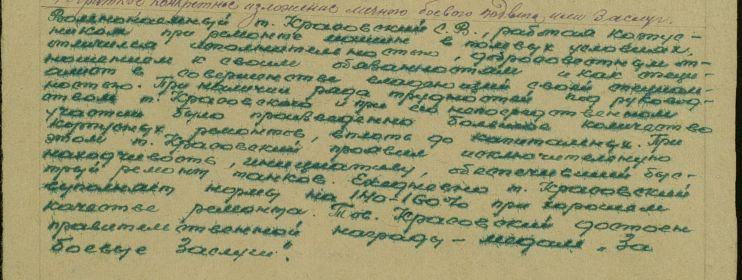 Краткое конкретное изложение личного боевого подвига или заслуг.
Военнопленный т. Красовский С.В., работая корпус-
ником при ремонте машин в полевых условиях,
отличился исполнительностью, добросовестным от-
ношением к своим обязанностям и как специ-
алист в совершенстве владеющий своей специаль-
ностью. При наличии ряда трудностей под руковод-
ством т. Красовского и при его непосредственном
участии было произведенно большое количество
корпусных ремонтов, вплоть до капитальных. При
этом т. Красовский проявил исключительную
находчивость, инициативу, обеспечивший быс-
трый ремонт танков. Ежедневно т. Красовский
выполняет норму на 140-160% при хорошем
качестве ремонта. Тов. Красовский достоен
правительственной награды – медали „За
боевые Заслуги".